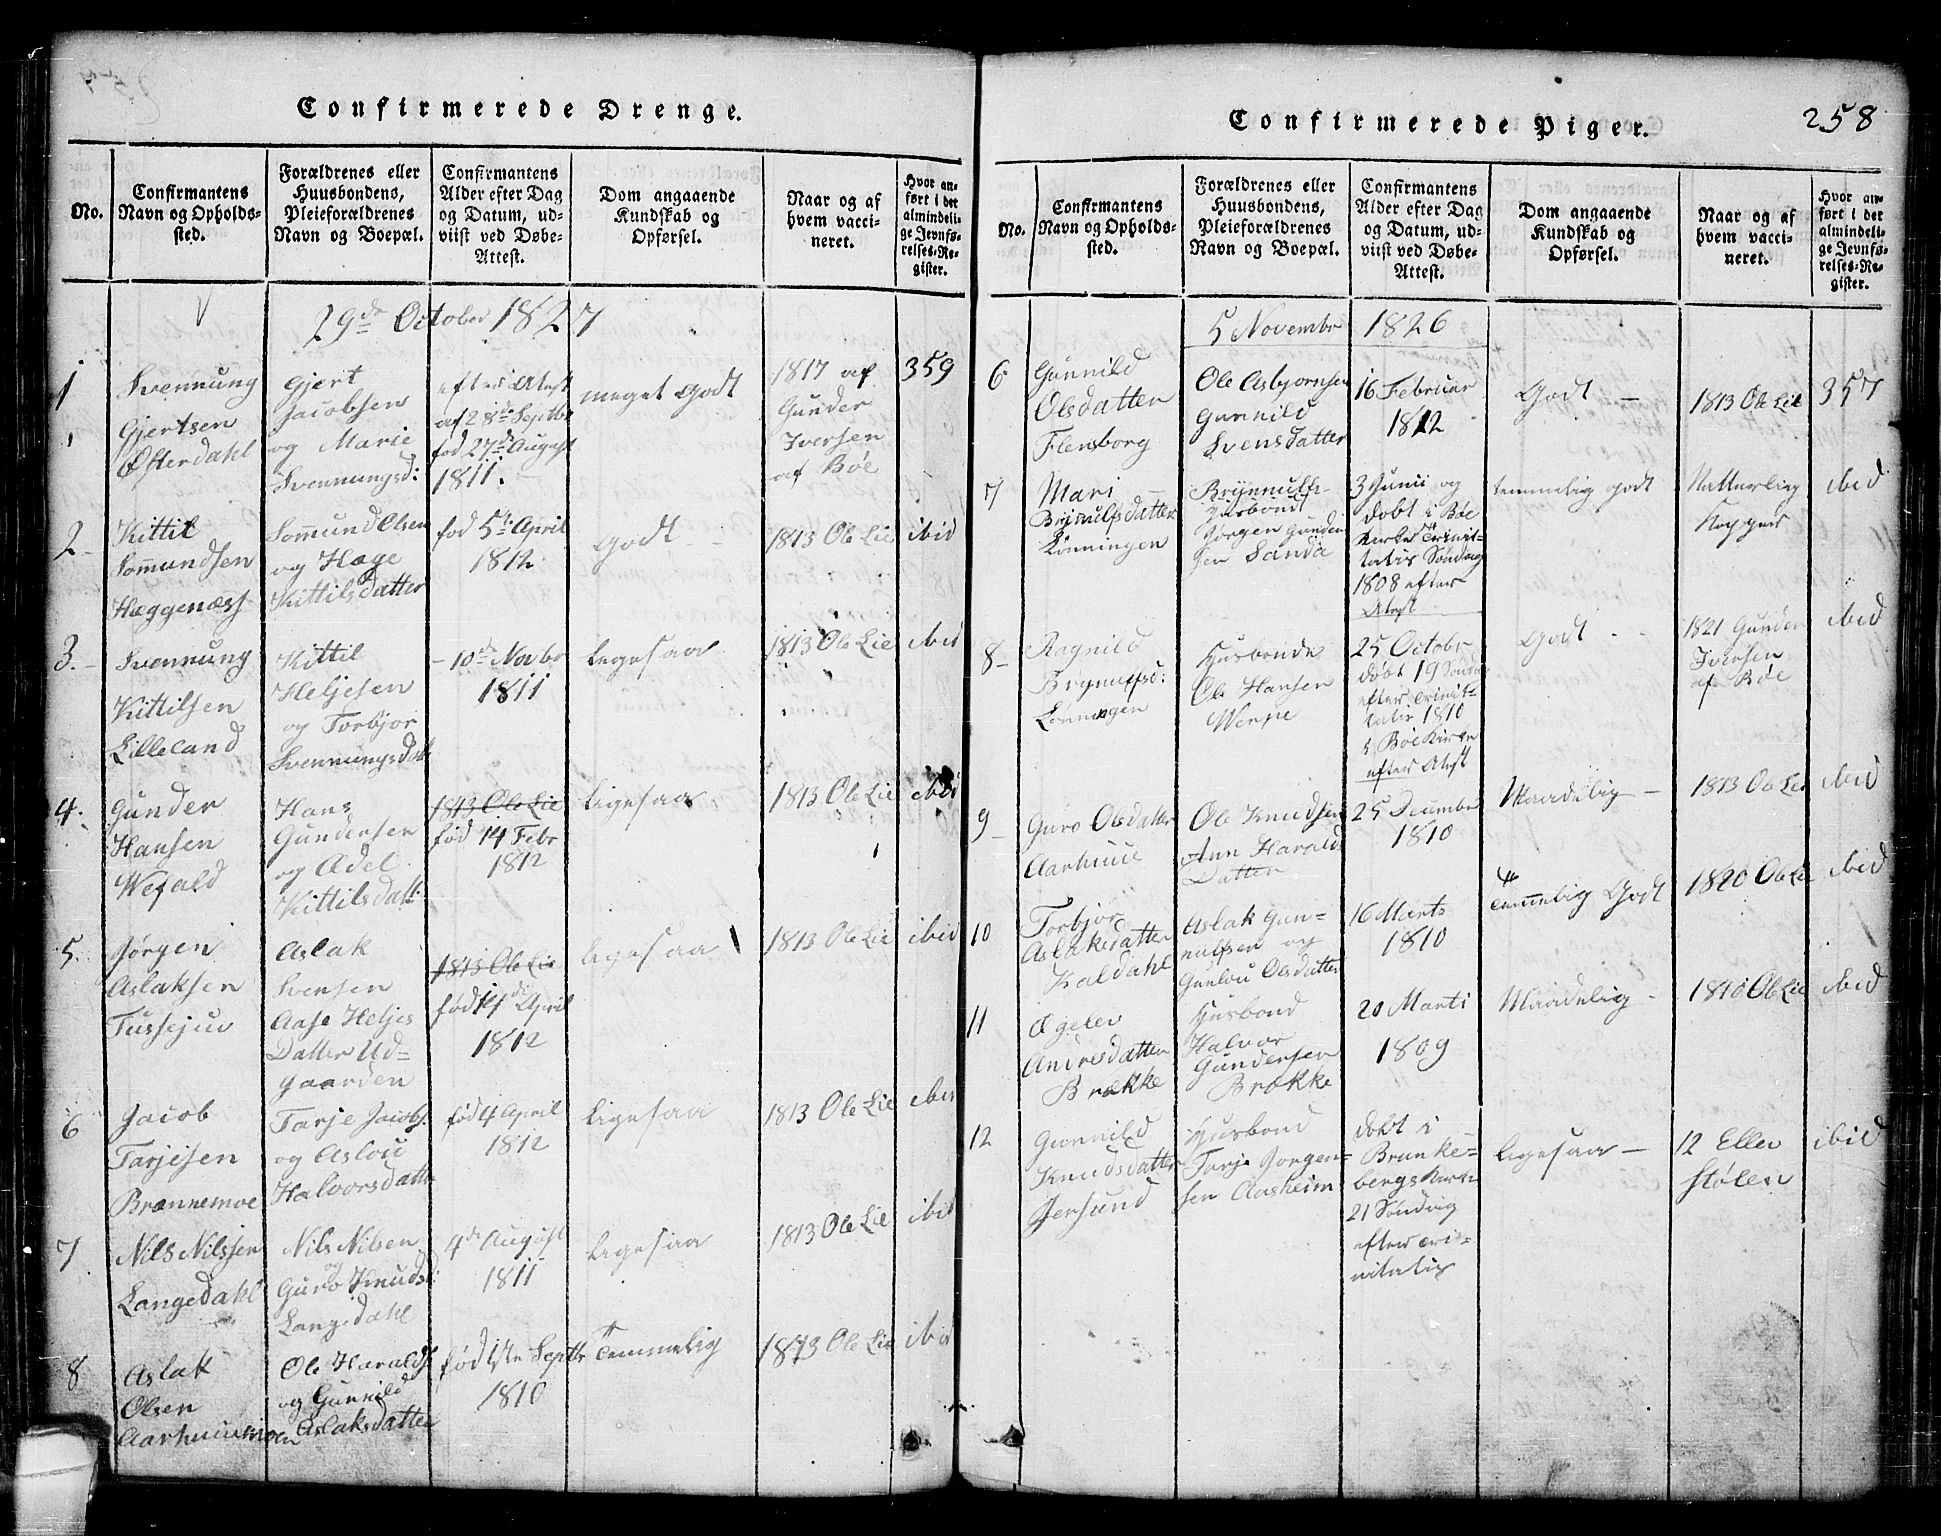 Confirmerede Drenge.
No.
Confirmantens
Navn og Opholds-
sted.
Forældrenes eller
Huusbondens,
Pleieforældrenes
Navn og Boepæl.
Confirmantens
Alder efter Dag
og Datum, ud-
viist ved Døbe-
Attest.
Dom angaaende
Kundskab og
Opførsel.
Naar og af
hvem vacci-
neret.
Hvor an-
ført i det
almindeli-
ge Jevnfø-
relses-Re-
gister.
29de October 1827
1
Svennung
Gjertsen
Østerdahl
Gjert
Jacobsen
og Marie
Svennungsd:
efter Atest
af 28de Septbr
fød 27de August
1811.
meget Godt
1817 af
Gunder
Iversen
af Bøe
359
2
Kittil
Sommundsen
Hæggenæss
Sommund Olsen
og Hæge
Kittilsdatter
fød 5te April
1812
Godt
1813 Ole Lie
ibid
3.
Svennung
Kittilsen
Lilleland
Kittil
Heljesen
og Torbjor
Svennungsdatt
10de Novbr
1811
ligesaa
1813 Ole Lie
ibid
4.
Gunder
Hansen
Wefald
Hans
Gundersen
og Adel
Kittilsdatt:
1813 Ole Lie
fød 14 Febr
1812
ligesaa
1813 Ole Lie
ibid
5.
Jørgen
Aslaksen
Tussejuv
Aslak
Svensen
Aase Heljes
Datter Ud-
Gaarden
1813 Ole Lie
fød 14de April
1812
ligesaa
1813 Ole Lie
ibid
6
Jacob
Tarjesen
Brannemoe
Tarje Jacobs.
og Aslou
Halvorsdatt
fød 4 April
1812
ligesaa
1813 Ole Lie
ibid
7
Nils Nilssen
Langedahl
Nils Nilsen
og
Guro Knuds:
Langedahl
4de August
1811
ligesaa
1813 Ole Lie
ibid
8
Aslak
Olsen
Aarhuusmoen
Ole Haralds
og Gunnild
Aslaksdatter
fød 1ste Septbr
1810
Temmelig
1813 Ole Lie
ibid
Confirmerede Piger.
258
No.
Confirmantens
Navn og Opholds-
sted.
Forældrenes eller
Huusbondens,
Pleieforældrenes
Navn og Boepæl.
Confirmantens
Alder efter Dag
og Datum, ud-
viist ved Døbe-
Attest.
Dom angaaende
Kundskab og
Opførsel.
Naar og af
hvem vacci-
neret.
Hvor an-
ført i det
almindeli-
ge Jevnfø-
relses-Re-
gister.
5 Novembr 1826
6
Gunnild
Olsdatter
Flensborg
Ole Asbjornsen
Gunnild
Svensdatter
16 Februar
1812
Godt
1813 Ole Lie
357
7
Mari
Brynulfsdatter
Lønningen
Brynnulf
Husbond
Jørgen Gunder
sen Sanda
3 Junii og
døbt i Bøe
Kirke Trinit-
tatis Søndag
1808 efter
Atest
temmelig godt
Natturlig
Kopper
ibid
8
Ragnild
Brynulfsd:
Lønningen
Husbonde
Ole Hansen
Werpe
25 Octobr
døbt 19 Sønda
efter Trinit-
tatis 1810
i Bøe Kirke
efter Atest
Godt
1821 Gunder
Iversen
af Bøe
ibid
9
Guro Olsdatter
Aarhuus
Ole Knudsen
Ann Harald
Datter
25 Decembr
1810
Maadelig
1813 Ole Lie
ibid
10
Torbjor
Aslaksdatter
Kaldahl
Aslak Gun-
nulfsen og
Gunlou Olsdatter
16 Marts
1810
Temmelig Godt
1820 Ole Lie
ibid
11
Egelev
Andresdatter
Brække
Husbond
Halvor
Gundersen
Brække
20 Marti
1809
Maadelig
1810 Ole Lie
ibid
12
Gunnild
Knudsdatter
Jersund
Husbond
Tarje Jorgen-
sen Aasheim
døbt i
Brunke-
bergs Kirke
21 Søndag
efter Tri-
nitatis
ligesaa
12 Eller
Stølen
ibid